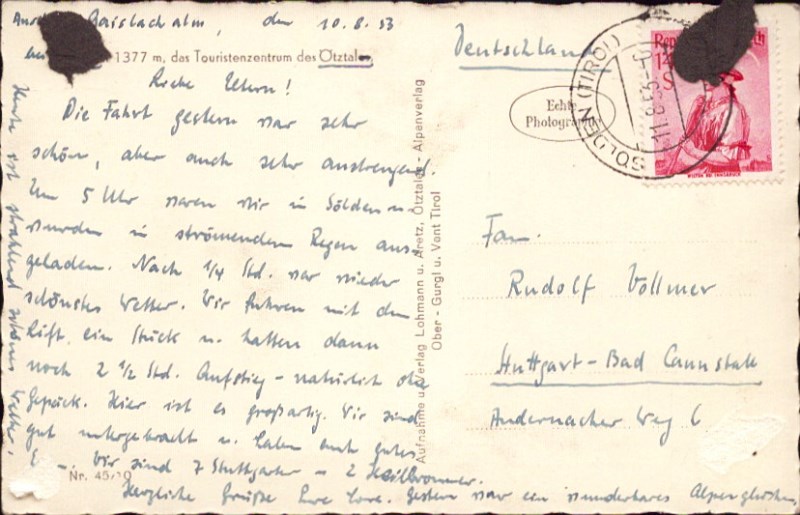 Gaislachalm, den 10.8.53
1377 m, das Touristenzentrum des Ötztales
Liebe Eltern!
Die Fahrt gestern war sehr
schön, aber auch sehr anstrengend.
Um 5 Uhr waren wir in Sölden u.
wurden in strömendem Regen aus-
geladen. Nach 1/4 Std. war wieder
schönstes Wetter. Wir fuhren mit dem
Lift ein Stück u. hatten dann
noch 2 1/2 Std. Aufstieg - natürlich ohne
Gepäck. Hier ist es großartig. Wir sind
gut untergebracht u. haben auch gutes
E. Wir sind 7 Stuttgarter u. 2 Heilbronner.
Herzliche Grüße Eure Lore. Gestern war ein wunderbares Alpenglühen.
Heute ist strahlend schönes Wetter.
Nr. 45/10
Aufnahme u. Verlag Lohmann u. Aretz, Ötztaler - Alpenverlag
Ober - Gurgl u. Vent Tirol
Deutschland
Echte
Photographie
SÖLDEN (TIROL)
11.8.53
Fam.
Rudolf Vollmer
Stuttgart - Bad Cannstatt
Andernacher Weg 6